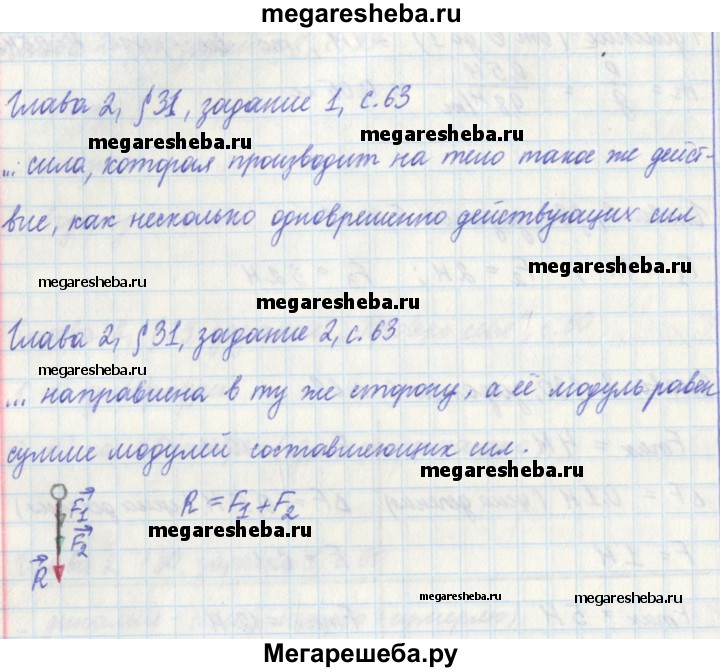 megaresheba.ru
Глава 2, § 31, задание 1, с. 63
megaresheba.ru
... сила, которая производит на тело такое же дейст-
megaresheba.ru
вие, как несколько одновременно действующих сил
megaresheba.ru
megaresheba.ru
megaresheba.ru
Глава 2, § 31, задание 2, с. 63
megaresheba.ru
... направлена в ту же сторону, а её модуль равен
megaresheba.ru
сумме модулей составляющих сил.
megaresheba.ru
F₁ R = F₁ + F₂
megaresheba.ru
F₂
R
megaresheba.ru
megaresheba.ru
Мегарешеба.ру